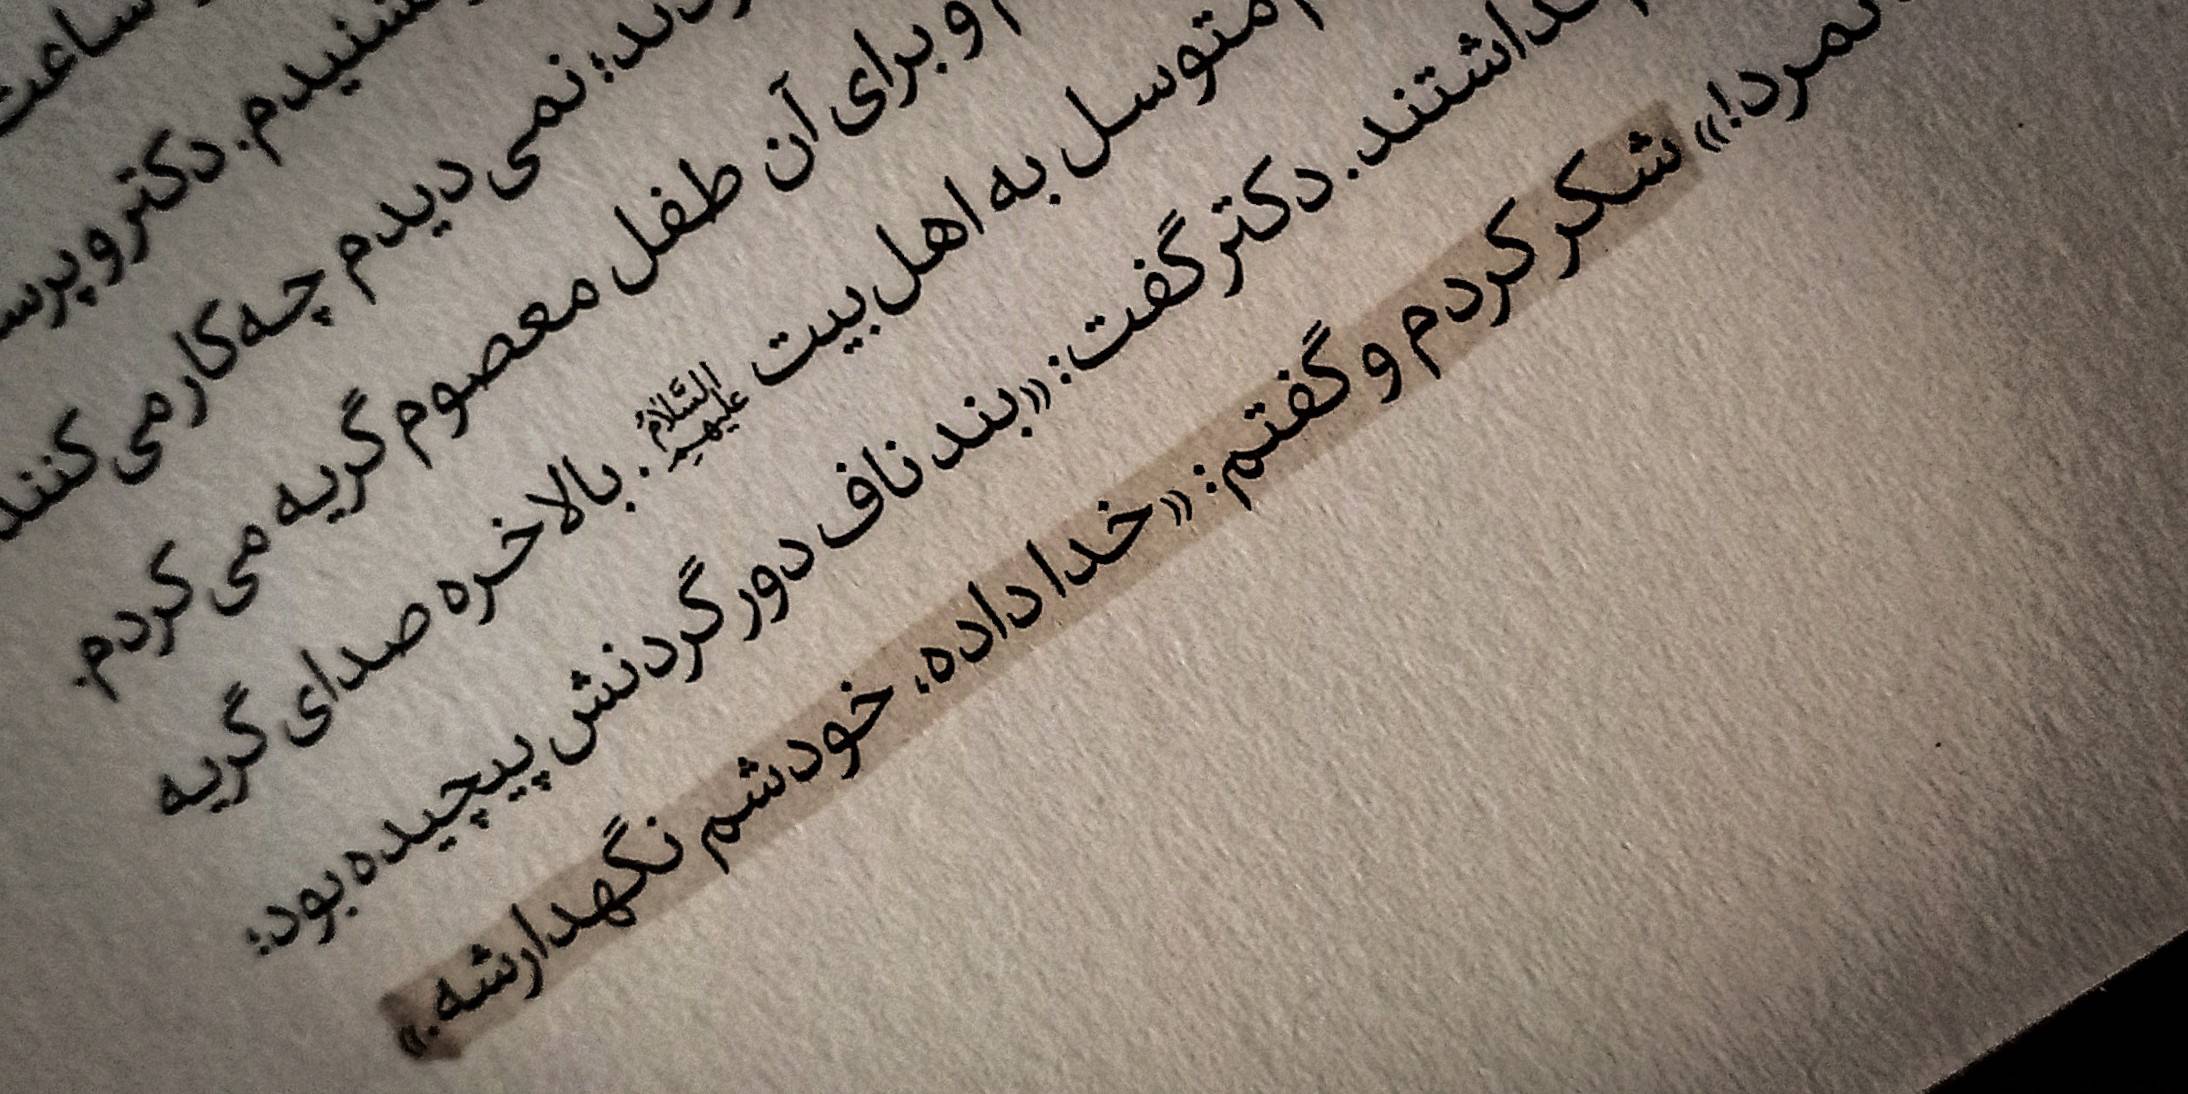 ساعت
شنیدم. دکتر و پرس
نمی دیدم چه کار می کنند
و برای آن طفل معصوم گریه می کردم.
متوسل به اهل بیت علیهم السلام. بالاخره صدای گریه
داشتند. دکتر گفت: «بند ناف دور گردنش پیچیده بود؛
نمرد!» شکر کردم و گفتم: «خدا داده، خودشم نگهدارشه.»